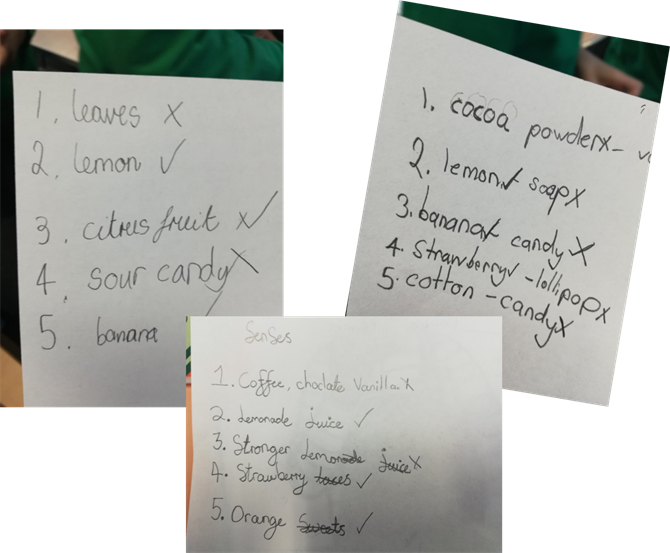 1. leaves X
2. lemon ✓
3. citrus fruit X✓
4. sour candy X
5. banana ✓
1. cocoa powder X -
2. lemon ✓ soap X
3. banana ✓ candy X
4. Strawberry ✓ - lollipop X
5. cotton - candy X
Senses
1. Coffee, choclate Vanilla X
2. Lemonade juice ✓
3. Stronger Lemonade juice X
4. Strawberry ✓
5. Orange Sweets ✓